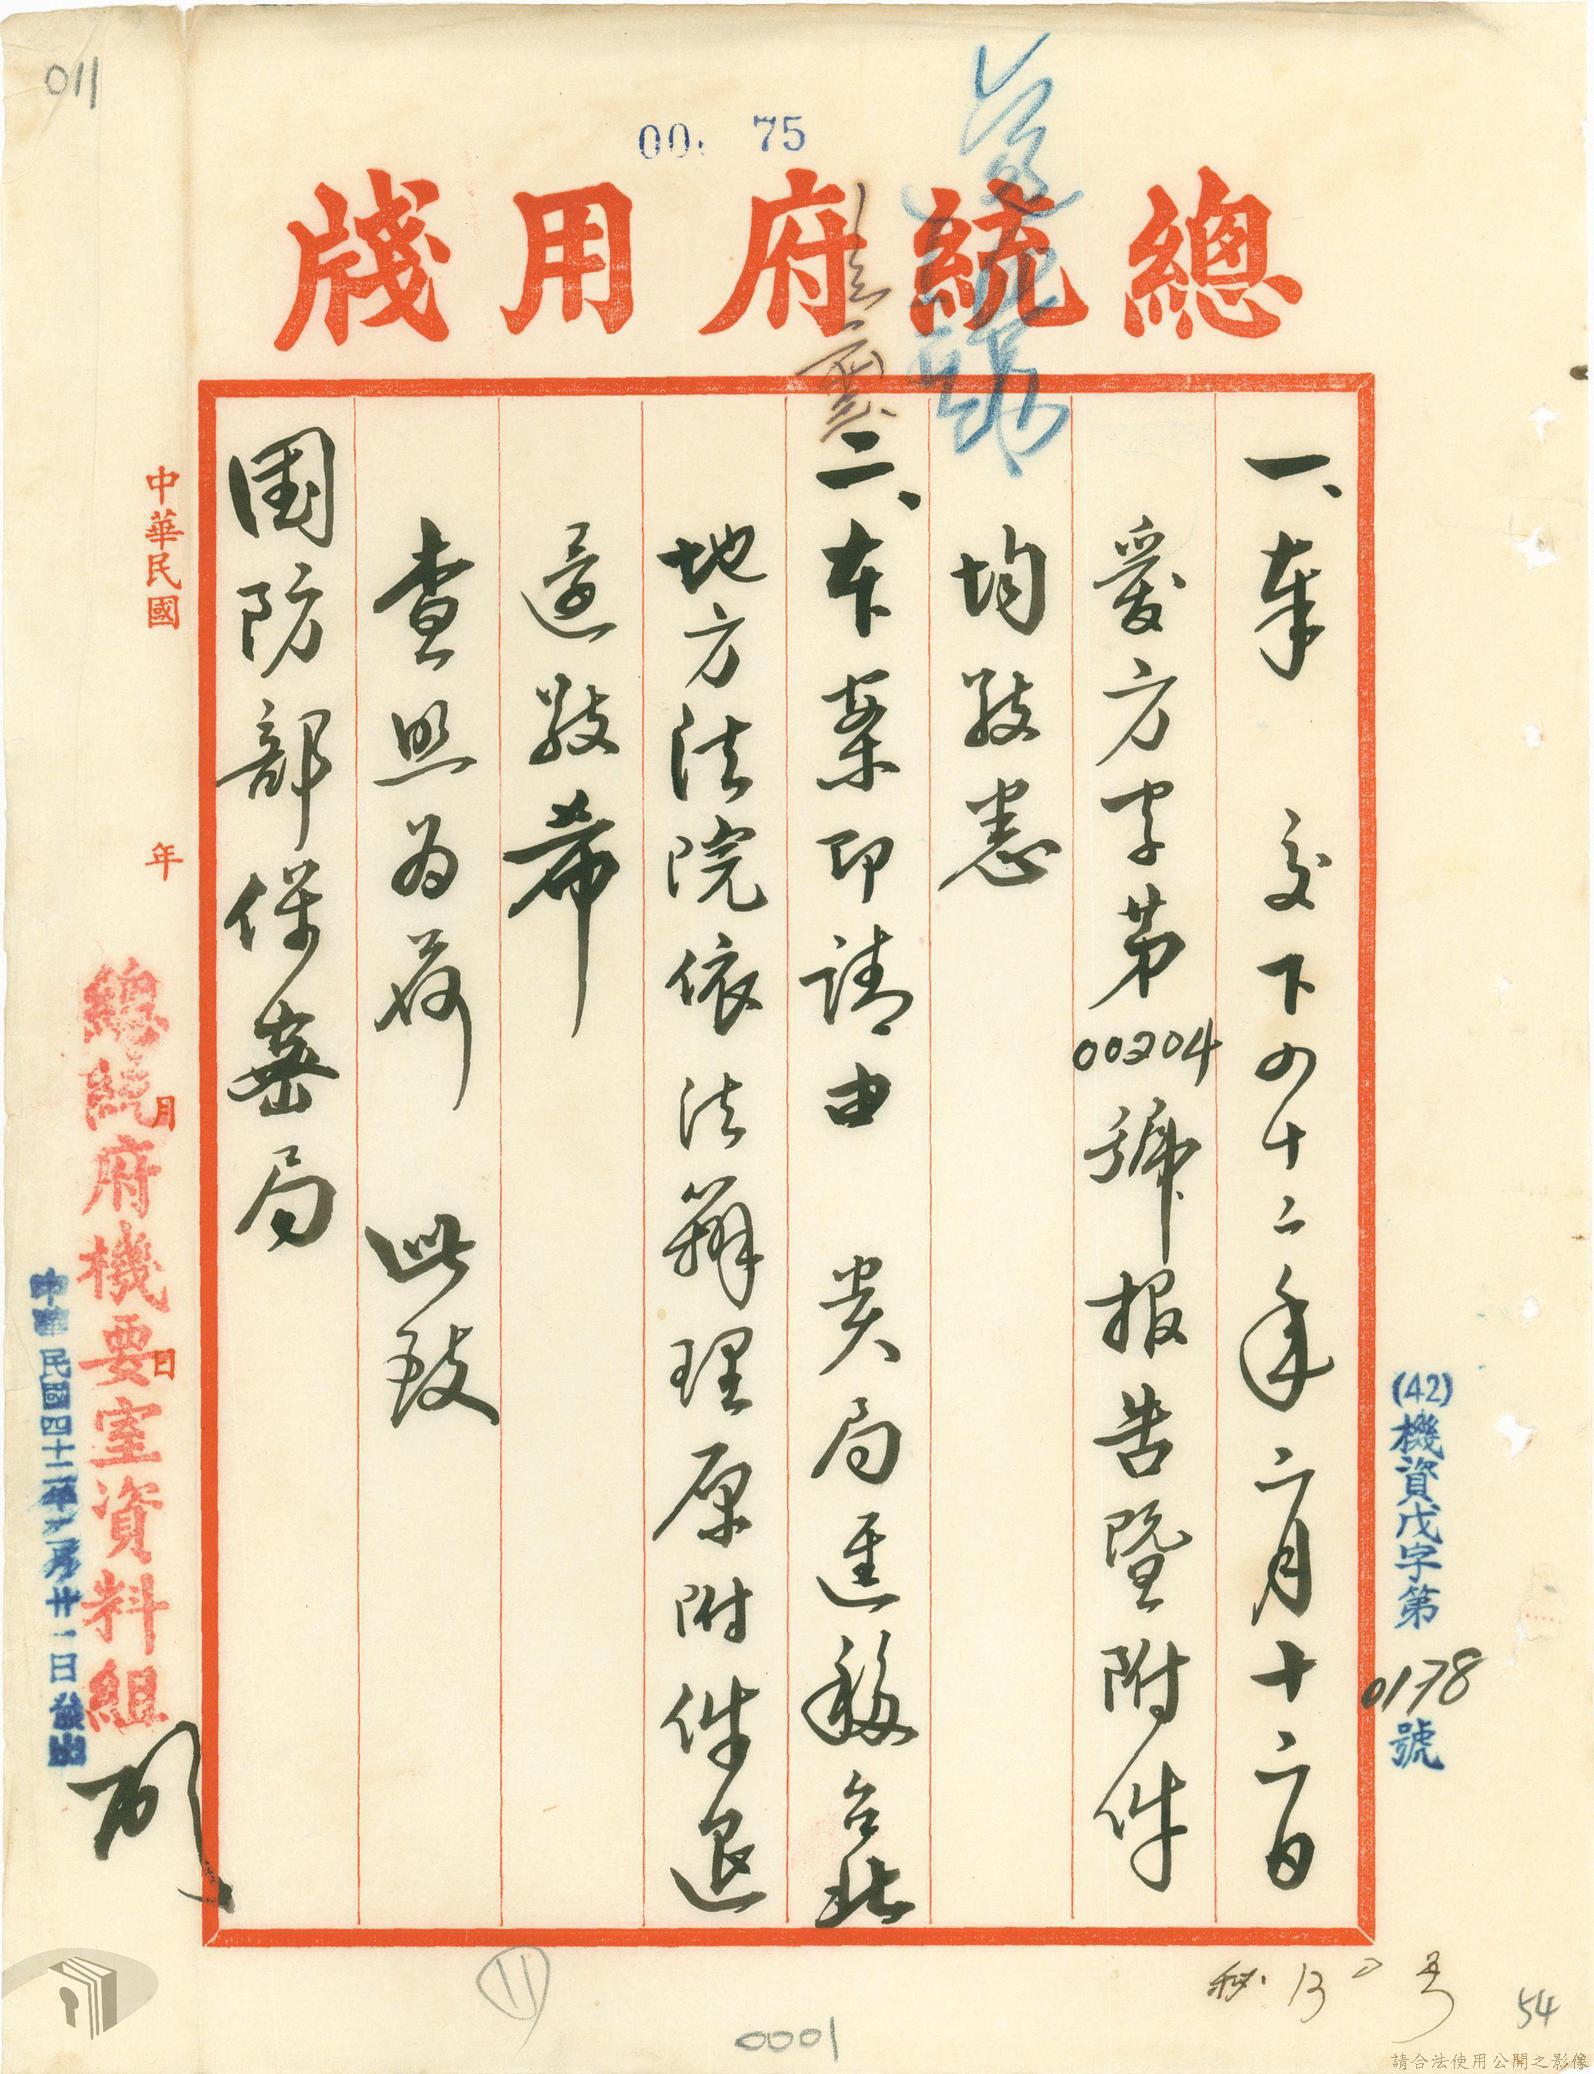 011
00 75
總統府用牋
(42)機資戊字第0178號
一、奉　交下四十二年二月十六日
爱方字第00204號報告暨附件
均敬悉
二、本案即請由　貴局逕移台北
地方法院依法辦理原附件退
還敬希
查照為荷　此致
國防部保密局
中華民國　年　月　日
總統府機要室資料組
中華民國四十二年二月廿一日發出
秘.
11
0001
54
請合法使用公開之影像